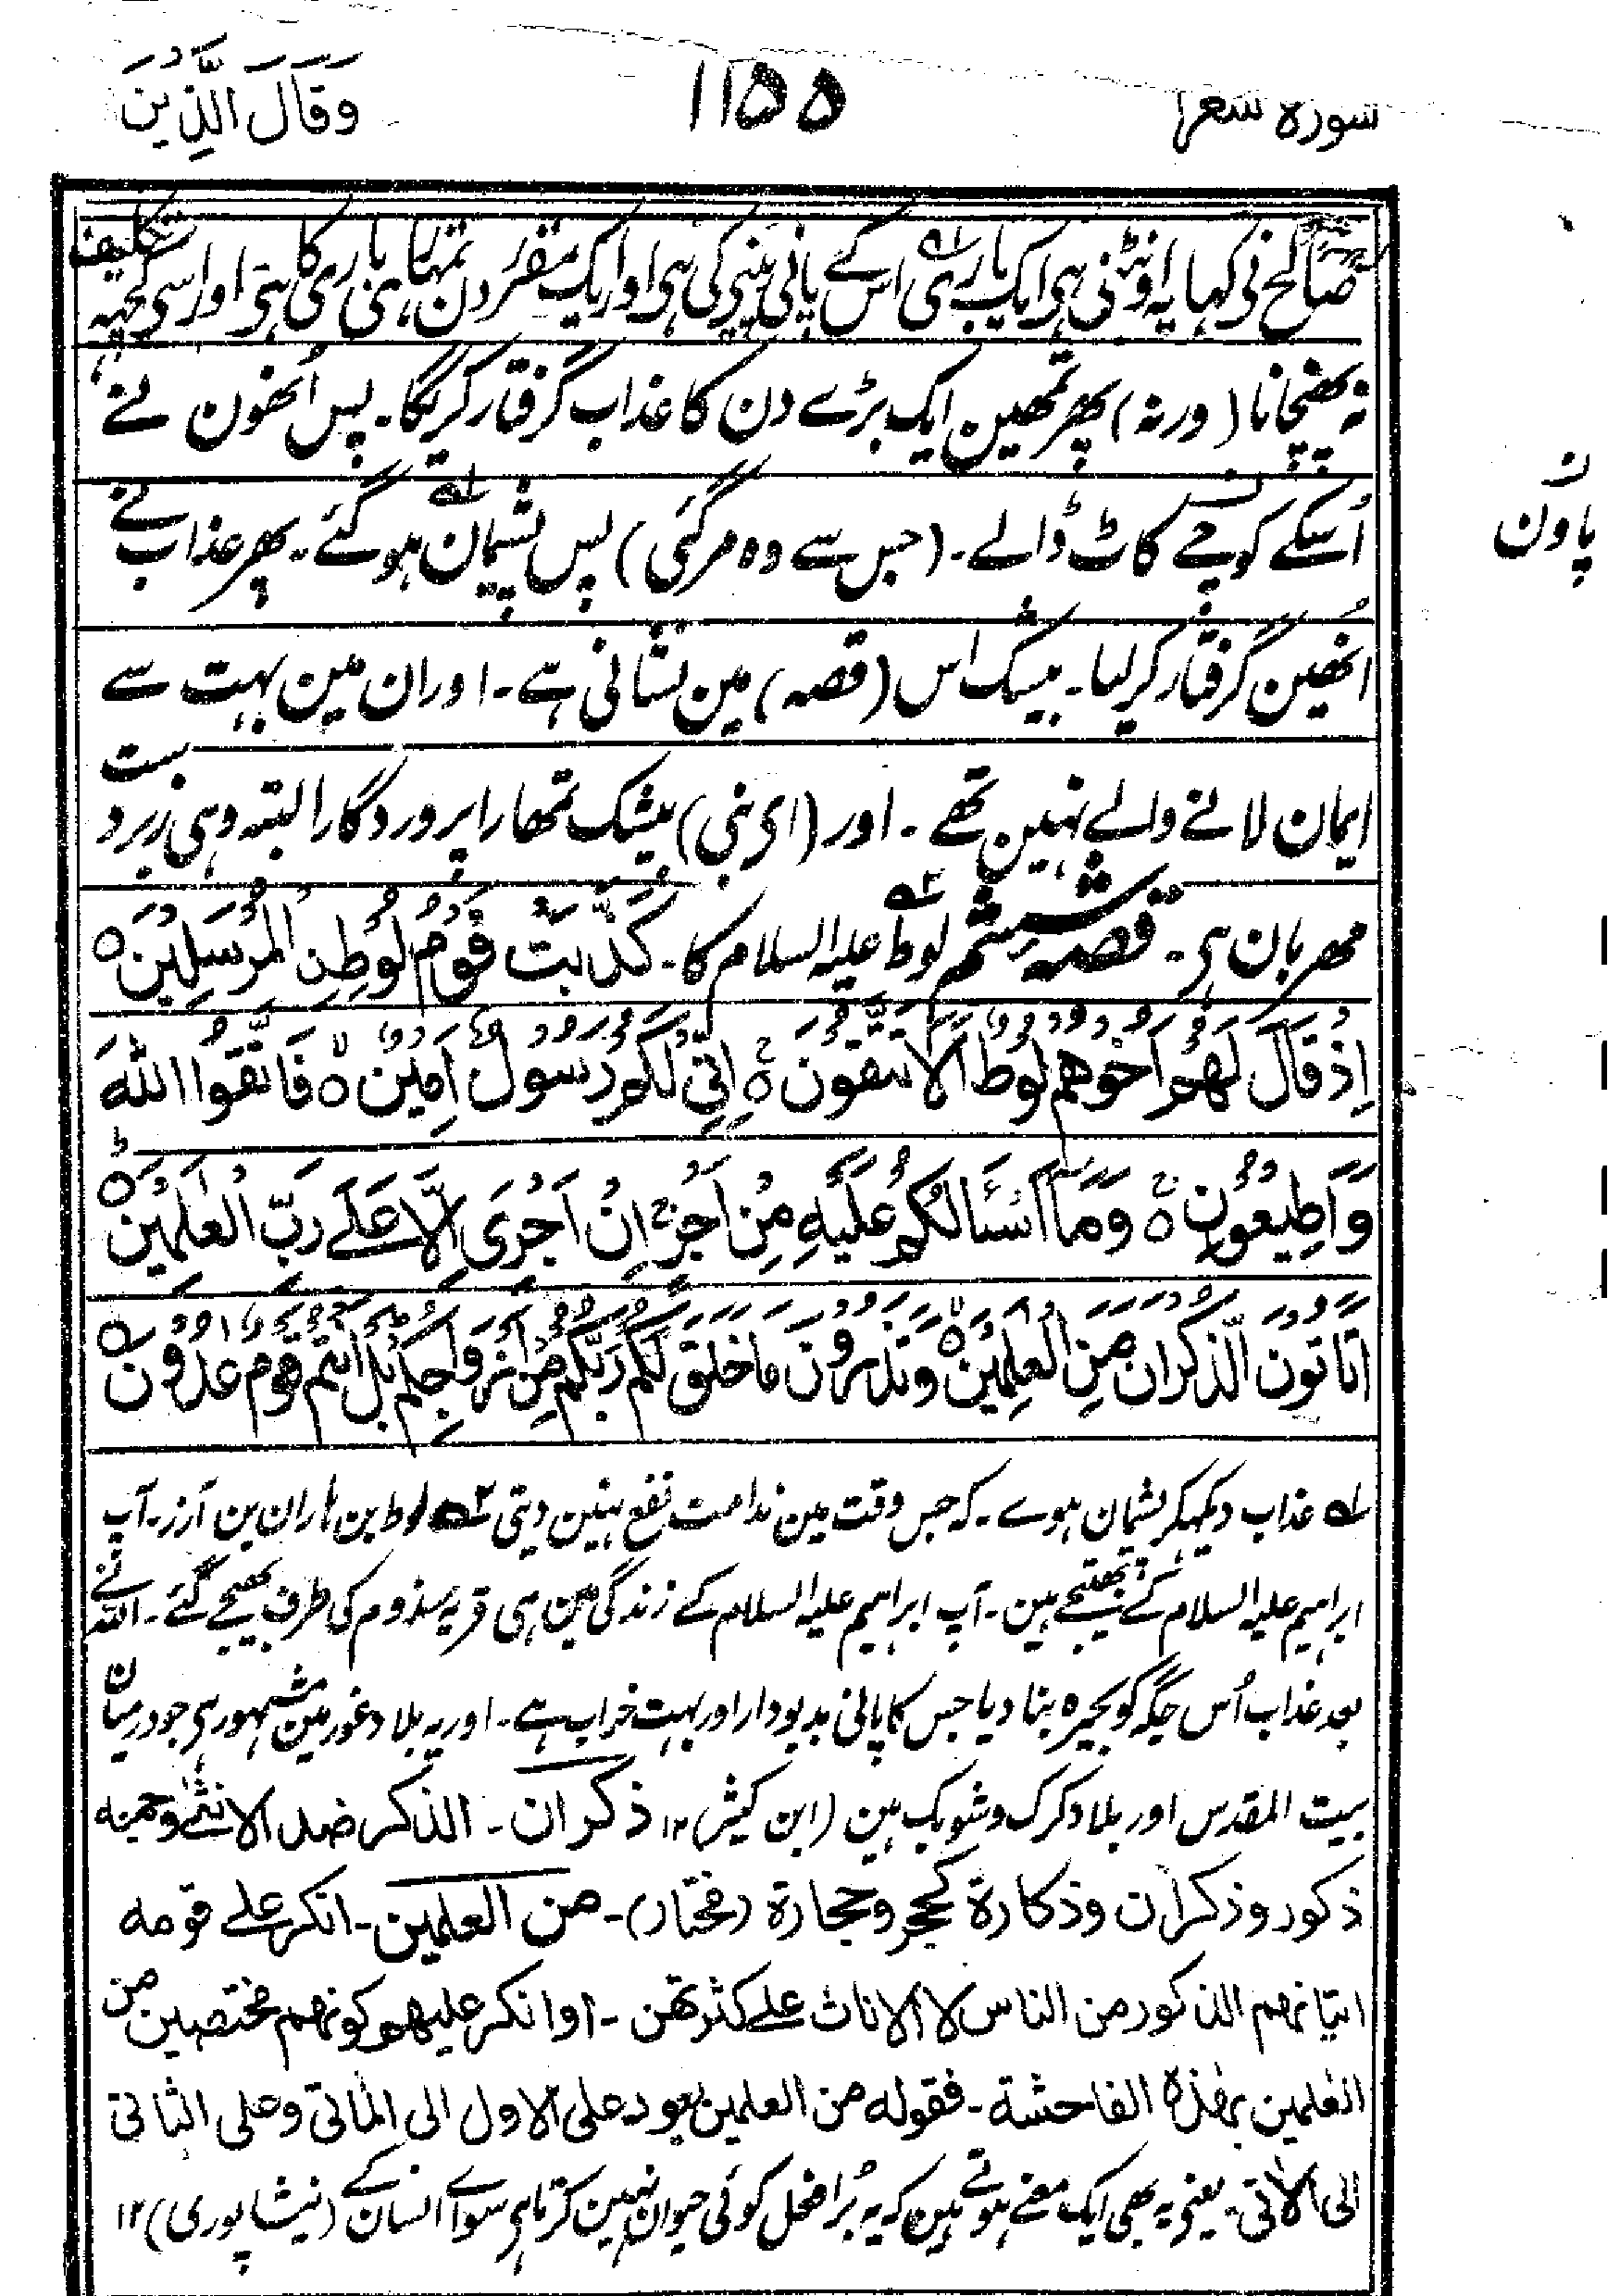 سورہ شعرا
۱۱۵۵
وَقَالَ الَّذِیْنَ
صالح نی کہا یہ اونٹنی ہی ایک باری اس کے پانی پینی کی ہی اور ایک مقرر دن تمہاری باری کا ہی اور اسی کچھ تکلیف
نہ پھنچانا (ورنہ) پھر تمھین ایک بڑے دن کا عذاب گرفتار کریگا۔ پس اُنھون نے
اُسکے کوچے کاٹ ڈالے۔ (جس سے وہ مرگئی) پس پشیمان ہوگئے ۔ پھر عذاب نے
پاون
انھین گرفتار کرلیا۔ بیشک اس (قصہ) مین نشانی ہے۔ اور ان مین بہت سے
ایمان لانے والے نہین تھے ۔ اور (ای نبی) بیشک تمھارا پروردگار البتہ وہی زبردست
مھربان ہی۔ قصہ ششم لوط علیہ السلام کا۔ کَذَّبَتْ قَوْمُ لُوْطِ نِ الْمُرْسَلِیْنَ ہ
اِذْ قَالَ لَهُمْ اَخُوْهُمْ لُوْطٌ اَلَا تَتَّقُوْنَ ہ اِنِّیْ لَكُمْ رَسُوْلٌ اَمِیْنٌ ہ فَاتَّقُوا اللّٰهَ
وَاَطِیْعُوْنِ ہ وَمَآ اَسْـَٔالُكُمْ عَلَیْهِ مِنْ اَجْرٍ اِنْ اَجْرِیَ اِلَّا عَلٰے رَبِّ الْعٰلَمِیْنَ ہ
اَتَاْتُوْنَ الذُّكْرَانَ مِنَ الْعٰلَمِیْنَ ہ وَتَذَرُوْنَ مَا خَلَقَ لَكُمْ رَبُّكُمْ مِّنْ اَزْوَاجِكُمْ بَلْ اَنْتُمْ قَوْمٌ عٰدُوْنَ ہ
؎۱ عذاب دیکھکر پشمان ہوے ۔ کہ جس وقت مین ندامت نفع نہین دیتی ؎۲ لوط بن ہاران بن آزر۔ آپ
ابراہیم علیہ السلام کے بھتیجے ہین۔ آپ ابراہیم علیہ السلام کے زندگی مین ہی قریہ سذوم کی طرف بھیجے گئے۔ اللہ نے
بعد عذاب اُس جگہ کو بحیرہ بنا دیا جس کا پانی بدبودار اور بہت خراب ہے۔ اور یہ بلاد غور مین مشہور ہی جو درمیان
بیت المقدس اور بلاد کرک و شوبک ہین (ابن کثیر) ۱۲ ذکران ۔ الذکر ضد الانثی وجمعہ
ذکور وذکران وذکارة کحجر وحجارة (مختار)۔ من العلمین ۔ انکر علے قومہ
اتیانھم الذکور من الناس لا الاناث علے کثرتھن ۔ اوانکر علیھم کونھم مختصین من
العلمین بھذہ الفاحشة۔ فقولہ من العلمین یعود علی الاول الی الماتی وعلی الثانی
الی الاتی۔ یعنی یہ بھی ایک معنے ہوتے ہین کہ یہ بُرا فعل کوئی حیوان نہین کرتا ہی سواے انسان کے (نیشاپوری) ۱۲